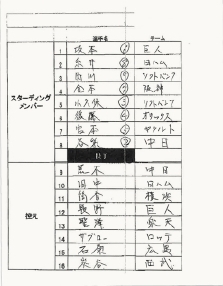 選手名 チーム
スターティングメンバー
1 坂本 ⑥ 巨人
2 糸井 ⑧ 日ハム
3 ソフトバンク
4 金本 ⑦ 阪神
5 小久保 ③ ソフトバンク
6 後藤 ④ オリックス
7 宮本 ⑤ ヤクルト
8 谷繁 ② 中日
控え
9 荒木 中日
10 田中 日ハム
11 横浜
12 巨人
13 楽天
14 サブロー ロッテ
15 石原 広島
16 炭谷 西武